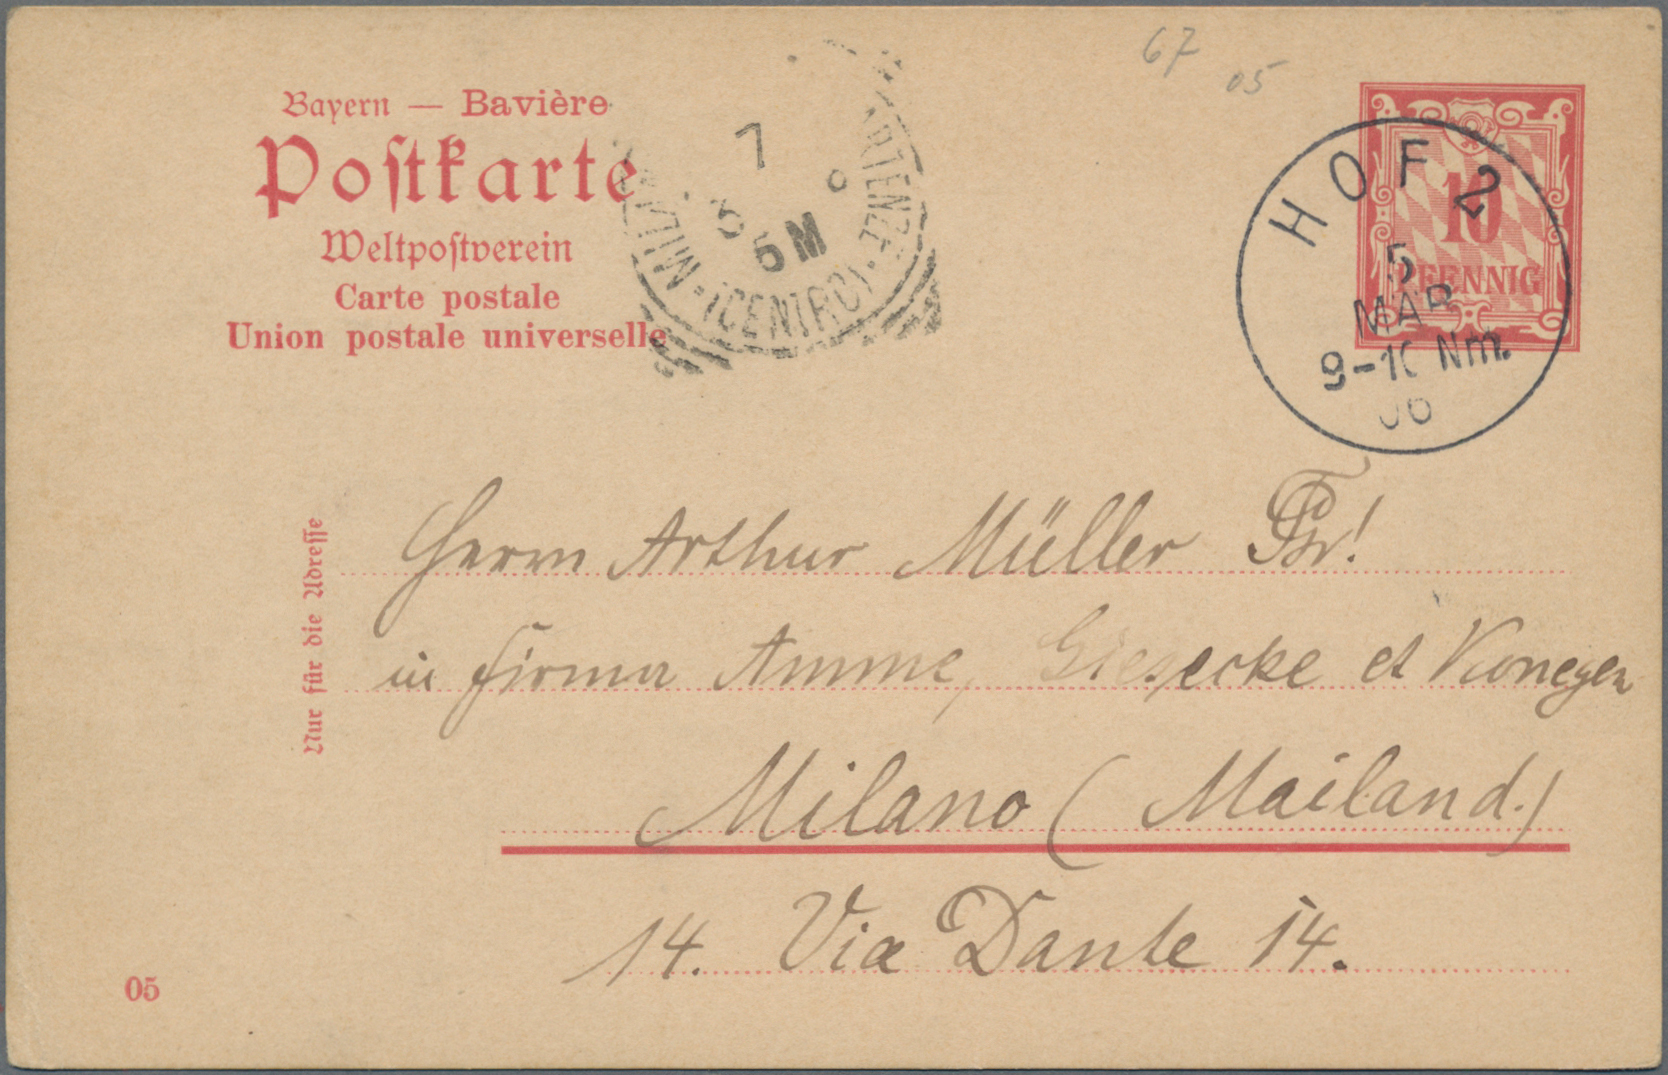 67
05
Bayern — Bavière
Postkarte
Weltpostverein
Carte postale
Union postale universelle
7
3
5M
(CENTRO)
HOF 2
5
MÄR
9-10 Nm.
06
10
PFENNIG
Nur für die Adresse
Herrn Arthur Müller
in Firma Amme, Giesecke et Konegen
Milano (Mailand.)
14. Via Dante 14.
05